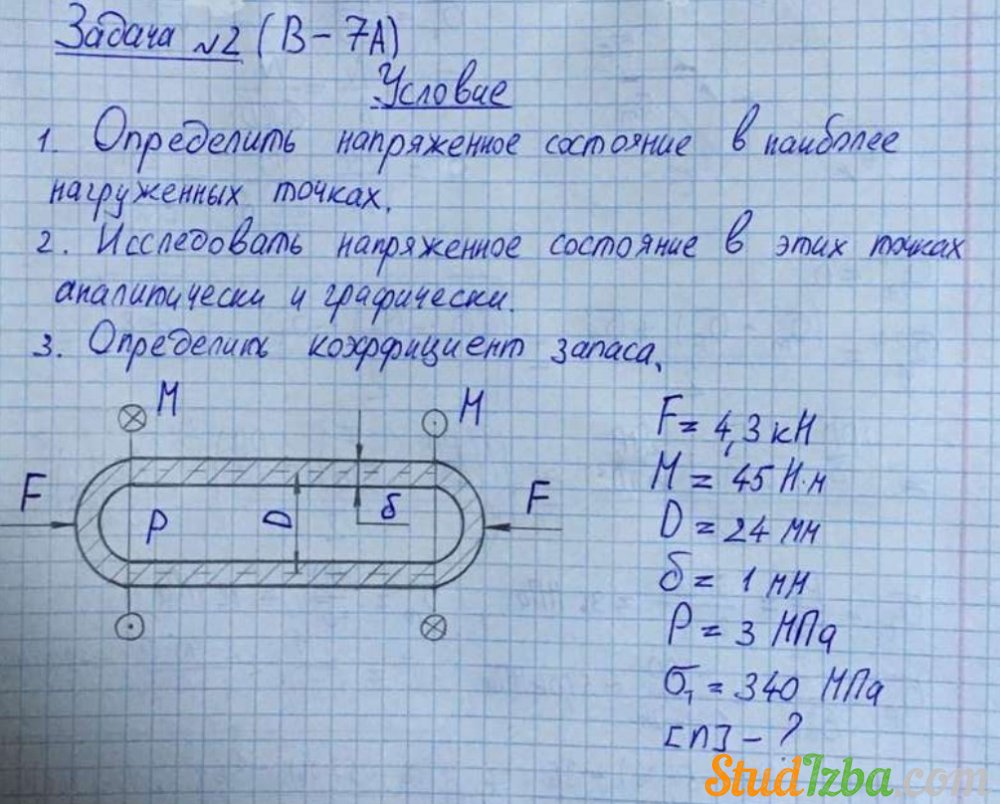 Задача №2 (В-7А)
Условие
1. Определить напряженное состояние в наиболее
нагруженных точках.
2. Исследовать напряженное состояние в этих точках
аналитически и графически.
3. Определить коэффициент запаса.
M M
F P D δ F
F = 4,3 кН
M = 45 Н·м
D = 24 мм
δ = 1 мм
P = 3 МПа
σт = 340 МПа
[n] - ?
StudIzba.com